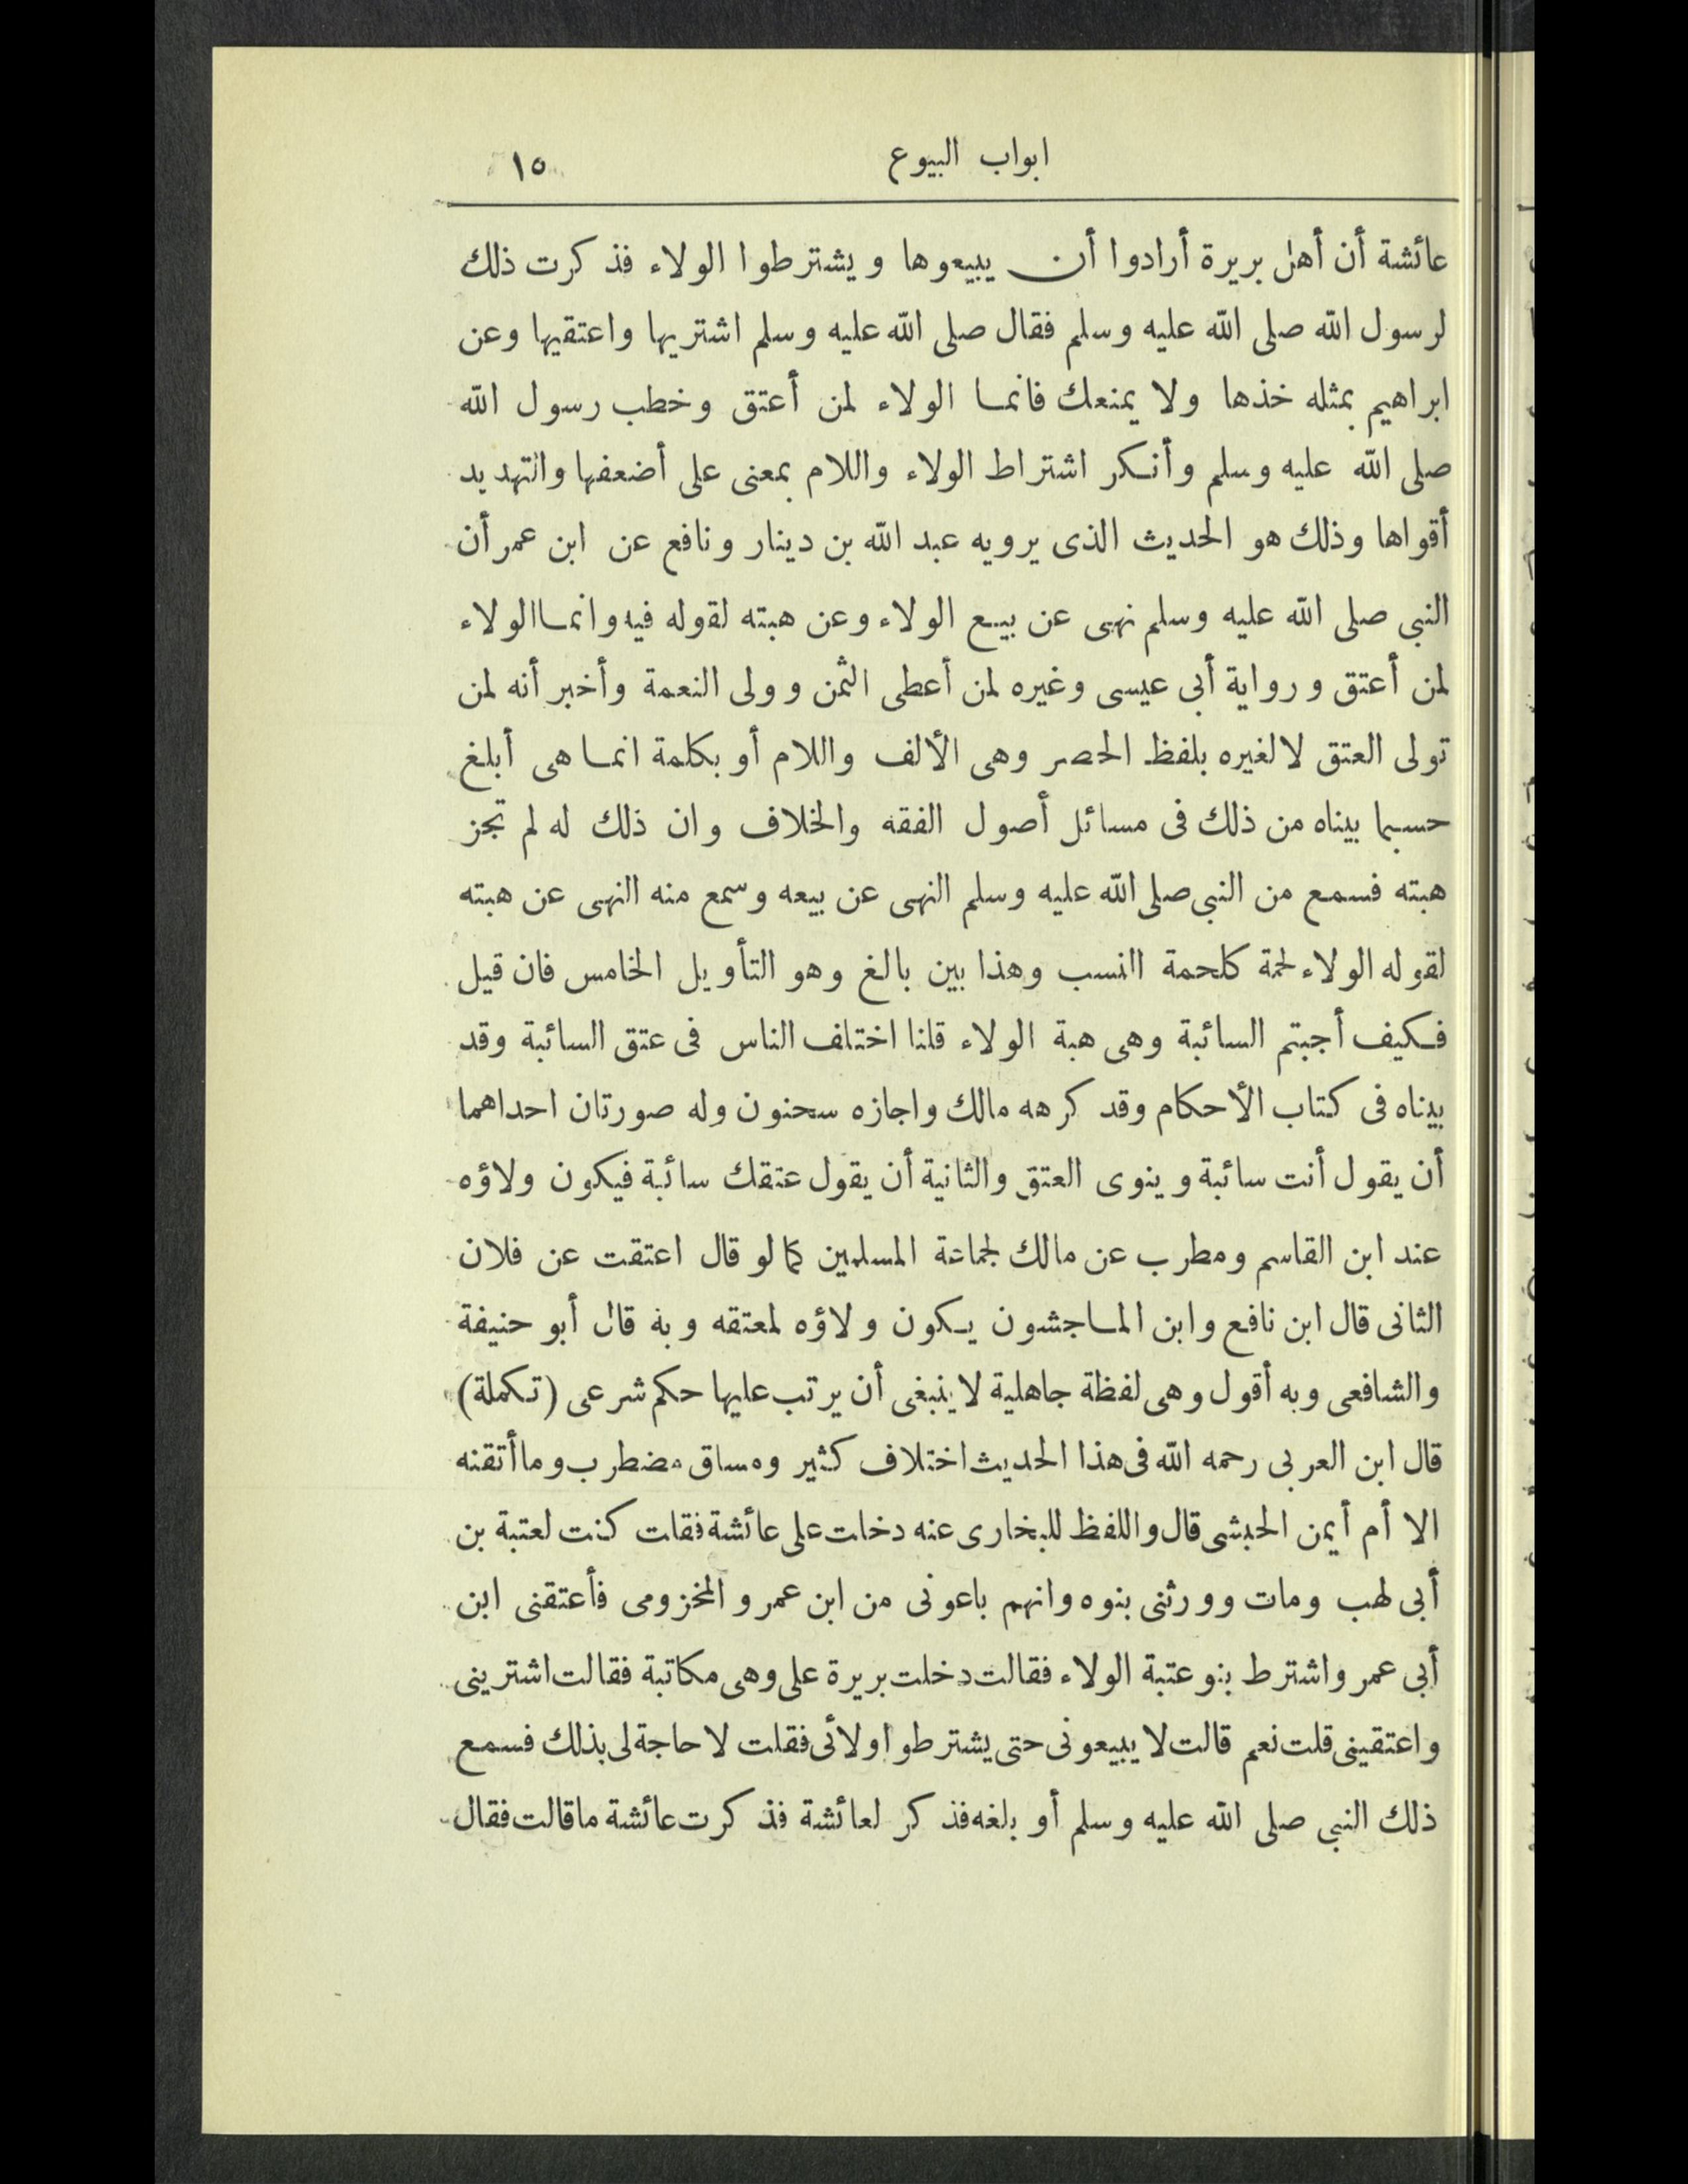 ابواب البيوع ١٥
عائشة أن أهل بريرة أرادوا أن يبيعوها ويشترطوا الولاء فذكرت ذلك
لرسول الله صلى الله عليه وسلم فقال صلى الله عليه وسلم اشتريها واعتقيها وعن
ابراهيم بمثله خذها ولا يمنعك فانما الولاء لمن أعتق وخطب رسول الله
صلى الله عليه وسلم وأنكر اشتراط الولاء واللام بمعنى على أضعفها والتهديد
أقواها وذلك هو الحديث الذى يرويه عبد الله بن دينار ونافع عن ابن عمر أن
النبى صلى الله عليه وسلم نهى عن بيع الولاء وعن هبته لقوله فيه وانما الولاء
لمن أعتق ورواية أبى عيسى وغيره لمن أعطى الثمن وولى النعمة وأخبر أنه لمن
تولى العتق لا لغيره بلفظ الحصر وهى الألف واللام أو بكلمة انما هى أبلغ
حسبما بيناه من ذلك فى مسائل أصول الفقه والخلاف وان ذلك له لم تجز
هبته فسمع من النبى صلى الله عليه وسلم النهى عن بيعه وسمع منه النهى عن هبته
لقوله الولاء لحمة كلحمة النسب وهذا بين بالغ وهو التأويل الخامس فان قيل
فكيف أجبتم السائبة وهى هبة الولاء قلنا اختلف الناس فى عتق السائبة وقد
بيناه فى كتاب الأحكام وقد كرهه مالك واجازه سحنون وله صورتان احداهما
أن يقول أنت سائبة وينوى العتق والثانية أن يقول عتقك سائبة فيكون ولاؤه
عند ابن القاسم ومطرب عن مالك لجماعة المسلمين كما لو قال اعتقت عن فلان
الثانى قال ابن نافع وابن الماجشون يكون ولاؤه لمعتقه وبه قال أبو حنيفة
والشافعى وبه أقول وهى لفظة جاهلية لا ينبغى أن يرتب عليها حكم شرعى (تكملة)
قال ابن العربى رحمه الله فى هذا الحديث اختلاف كثير ومساق مضطرب وما أتقنه
الا أم أيمن الحبشى قال واللفظ للبخارى عنه دخلت على عائشة فقلت كنت لعتبة بن
أبى لهب ومات وورثنى بنوه وانهم باعونى من ابن عمرو المخزومى فأعتقنى ابن
أبى عمر واشترط بنو عتبة الولاء فقالت دخلت بريرة على وهى مكاتبة فقالت اشترينى
واعتقينى قلت نعم قالت لا يبيعونى حتى يشترطوا ولائى فقلت لا حاجة لى بذلك فسمع
ذلك النبى صلى الله عليه وسلم أو بلغه فذكر لعائشة فذكرت عائشة ما قالت فقال